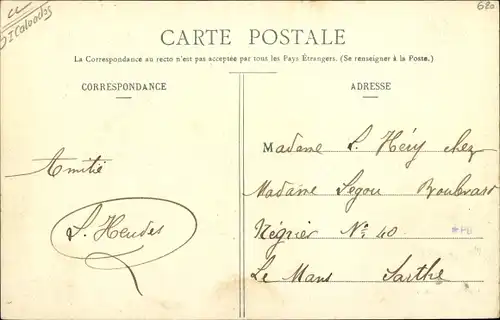 Calvados
620
CARTE POSTALE
La Correspondance au recto n'est pas acceptée par tout les Pays Étrangers. (Se renseigner à la Poste.)
CORRESPONDANCE
ADRESSE
Amitié
Madame S. Héry chez
Madame Segou Boulevard
Négrier No 40
Le Mans Sarthe